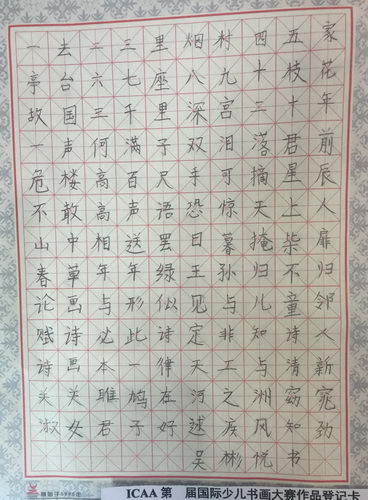 一去二三里烟村四五家
亭台六七座八九十枝花
故国三千里深宫二十年
一声何满子双泪落君前
危楼高百尺手可摘星辰
不敢高声语恐惊天上人
山中相送罢日暮掩柴扉
春草年年绿王孙归不归
论画与形似见与儿童邻
赋诗必此诗定非知诗人
诗画本一律天工与清新
关关雎鸠在河之洲窈窕
淑女君子好逑疾风知劲
吴彬悦书
ICAA 第 届国际少儿书画大赛作品登记卡